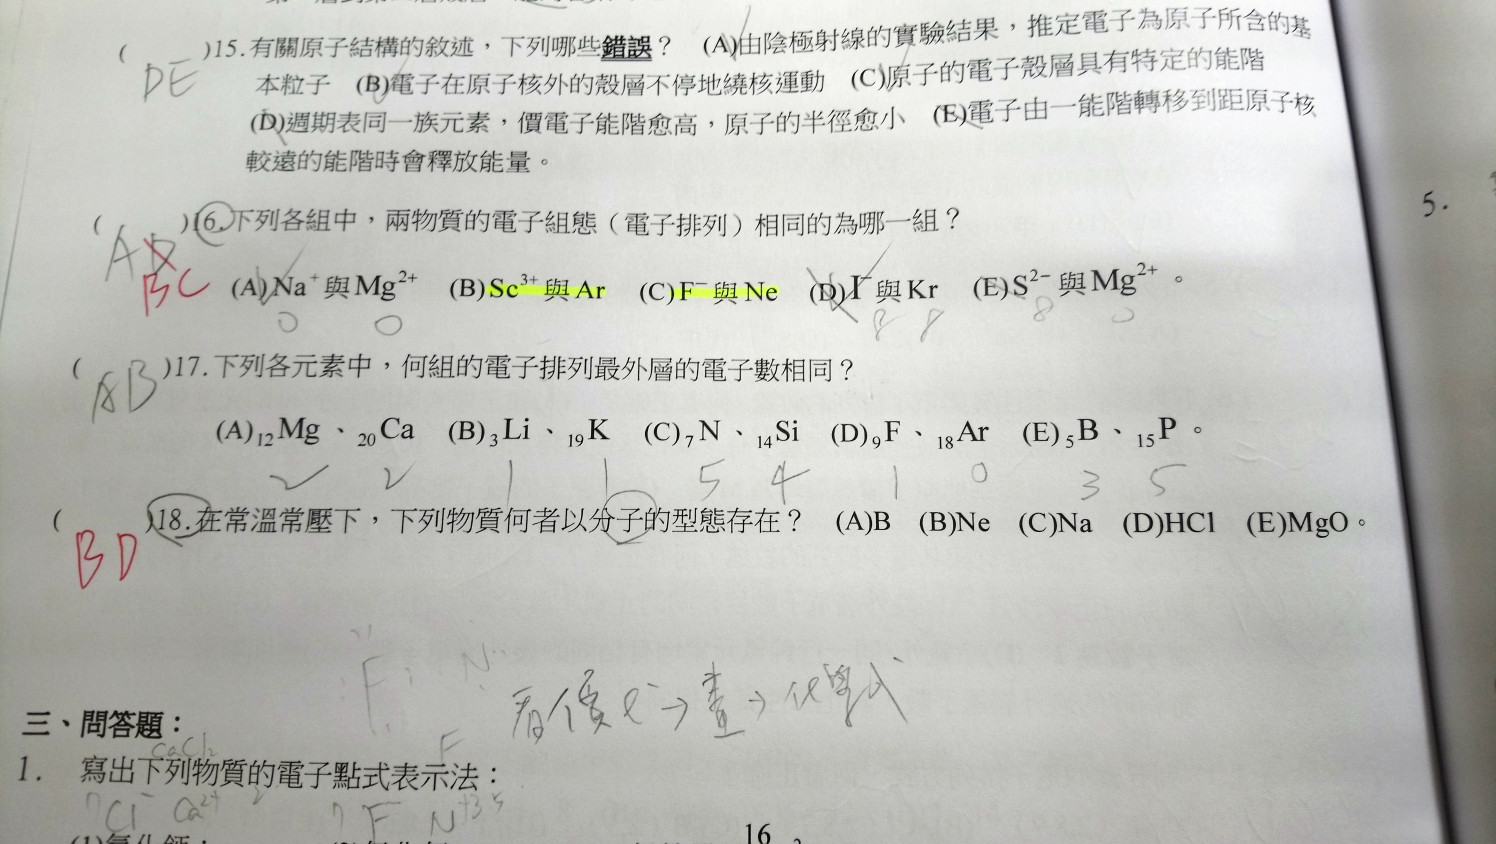 ( )15.有關原子結構的敘述，下列哪些錯誤？ (A)由陰極射線的實驗結果，推定電子為原子所含的基
DE
本粒子 (B)電子在原子核外的殼層不停地繞核運動 (C)原子的電子殼層具有特定的能階
(D)週期表同一族元素，價電子能階愈高，原子的半徑愈小 (E)電子由一能階轉移到距原子核
較遠的能階時會釋放能量。
5.
( )16.下列各組中，兩物質的電子組態（電子排列）相同的為哪一組？
AD
BC
(A)Na⁺與Mg²⁺ (B)Sc³⁺與Ar (C)F⁻與Ne (D)I⁻與Kr (E)S²⁻與Mg²⁺。
0 0 8 8 8 0
( )17.下列各元素中，何組的電子排列最外層的電子數相同？
AB
(A)₁₂Mg、₂₀Ca (B)₃Li、₁₉K (C)₇N、₁₄Si (D)₉F、₁₈Ar (E)₅B、₁₅P。
2 2 1 1 5 4 1 0 3 5
( )18.在常溫常壓下，下列物質何者以分子的型態存在？ (A)B (B)Ne (C)Na (D)HCl (E)MgO。
BD
F N
看價e⁻→畫→化學式
三、問答題：
CaCl₂ F
1. 寫出下列物質的電子點式表示法：
7 Cl⁻ Ca²⁺ 2 7 F N⁺³ 5
16